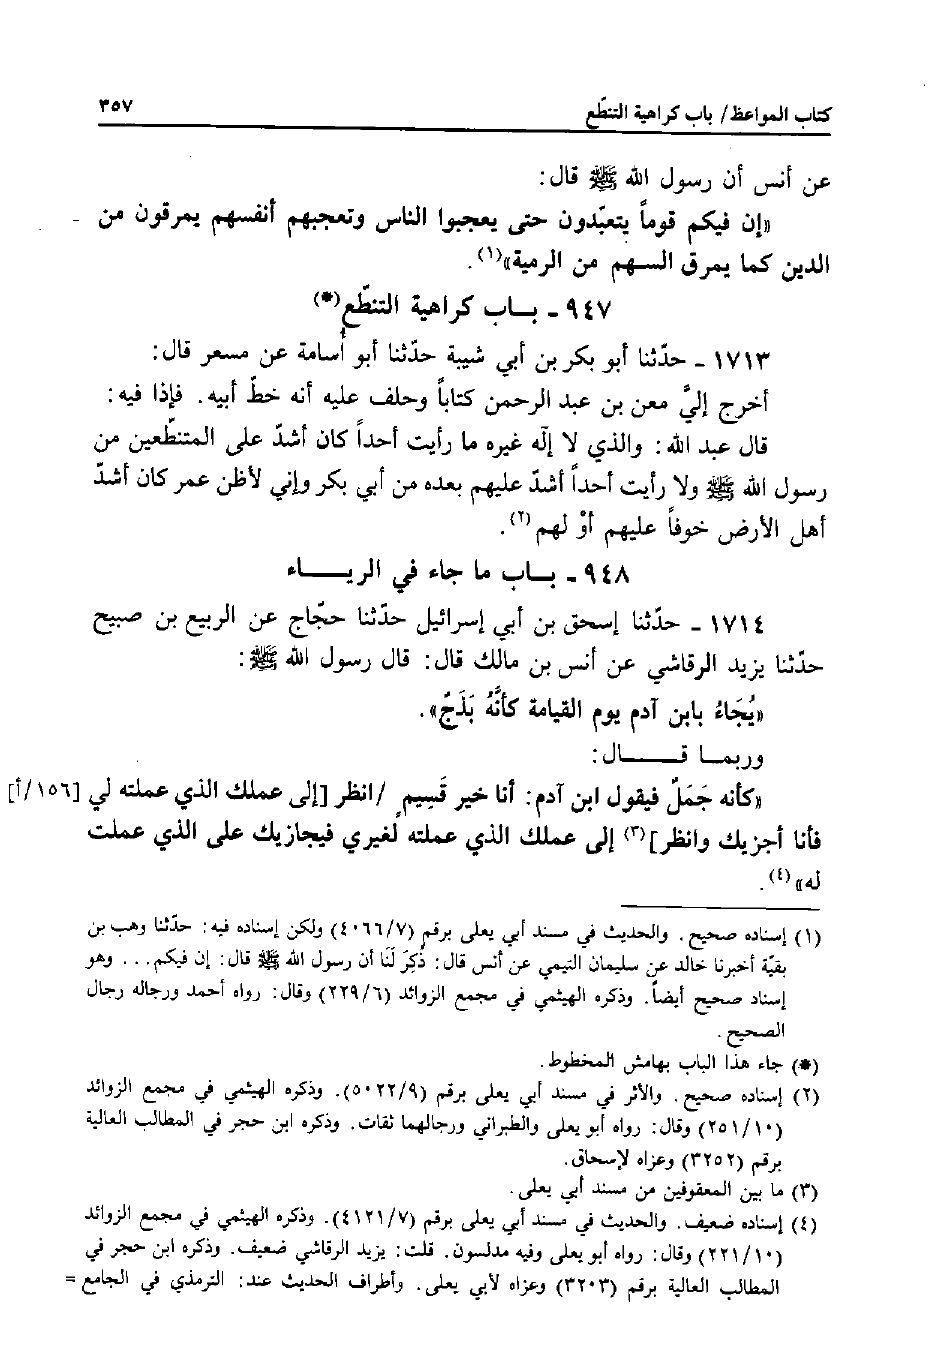 كتاب المواعظ/ باب كراهية التنطّع ٣٥٧
عن أنس أن رسول الله ﷺ قال:
«إن فيكم قوماً يتعبّدون حتى يعجبوا الناس وتعجبهم أنفسهم يمرقون من
الدين كما يمرق السهم من الرمية»(١).
٩٤٧ ـ بـاب كراهية التنطّع(*)
١٧١٣ ـ حدّثنا أبو بكر بن أبي شيبة حدّثنا أبو أسامة عن مسعر قال:
أخرج إليَّ معن بن عبد الرحمن كتاباً وحلف عليه أنه خطّ أبيه. فإذا فيه:
قال عبد الله: والذي لا إلٰه غيره ما رأيت أحداً كان أشدّ على المتنطّعين من
رسول الله ﷺ ولا رأيت أحداً أشدّ عليهم بعده من أبي بكر وإني لأظن عمر كان أشدّ
أهل الأرض خوفاً عليهم أوْ لهم(٢).
٩٤٨ ـ بـاب ما جاء في الريـــاء
١٧١٤ ـ حدّثنا إسحق بن أبي إسرائيل حدّثنا حجّاج عن الربيع بن صبيح
حدّثنا يزيد الرقاشي عن أنس بن مالك قال: قال رسول الله ﷺ:
«يُجَاءُ بابن آدم يوم القيامة كأنَّهُ بَذَجٌ».
وربمـا قـــال:
«كأنه جَمَلٌ فيقول ابن آدم: أنا خير قَسِيمٍ /انظر [إلى عملك الذي عملته لي [١٥٦/أ]
فأنا أجزيك وانظر](٣) إلى عملك الذي عملته لغيري فيجازيك على الذي عملت
له»(٤).
(١) إسناده صحيح. والحديث في مسند أبي يعلى برقم (٤٠٦٦/٧) ولكن إسناده فيه: حدّثنا وهب بن
بقيّة أخبرنا خالد عن سليمان التيمي عن أنس قال: ذُكِرَ لَنَا أن رسول الله ﷺ قال: إن فيكم... وهو
إسناد صحيح أيضاً. وذكره الهيثمي في مجمع الزوائد (٢٢٩/٦) وقال: رواه أحمد ورجاله رجال
الصحيح.
(*) جاء هذا الباب بهامش المخطوط.
(٢) إسناده صحيح. والأثر في مسند أبي يعلى برقم (٥٠٢٢/٩). وذكره الهيثمي في مجمع الزوائد
(٢٥١/١٠) وقال: رواه أبو يعلى والطبراني ورجالهما ثقات. وذكره ابن حجر في المطالب العالية
برقم (٣٢٥٢) وعزاه لإسحاق.
(٣) ما بين المعقوفين من مسند أبي يعلى.
(٤) إسناده ضعيف. والحديث في مسند أبي يعلى برقم (٤١٢١/٧). وذكره الهيثمي في مجمع الزوائد
(٢٢١/١٠) وقال: رواه أبو يعلى وفيه مدلسون. قلت: يزيد الرقاشي ضعيف. وذكره ابن حجر في
المطالب العالية برقم (٣٢٠٣) وعزاه لأبي يعلى. وأطراف الحديث عند: الترمذي في الجامع =